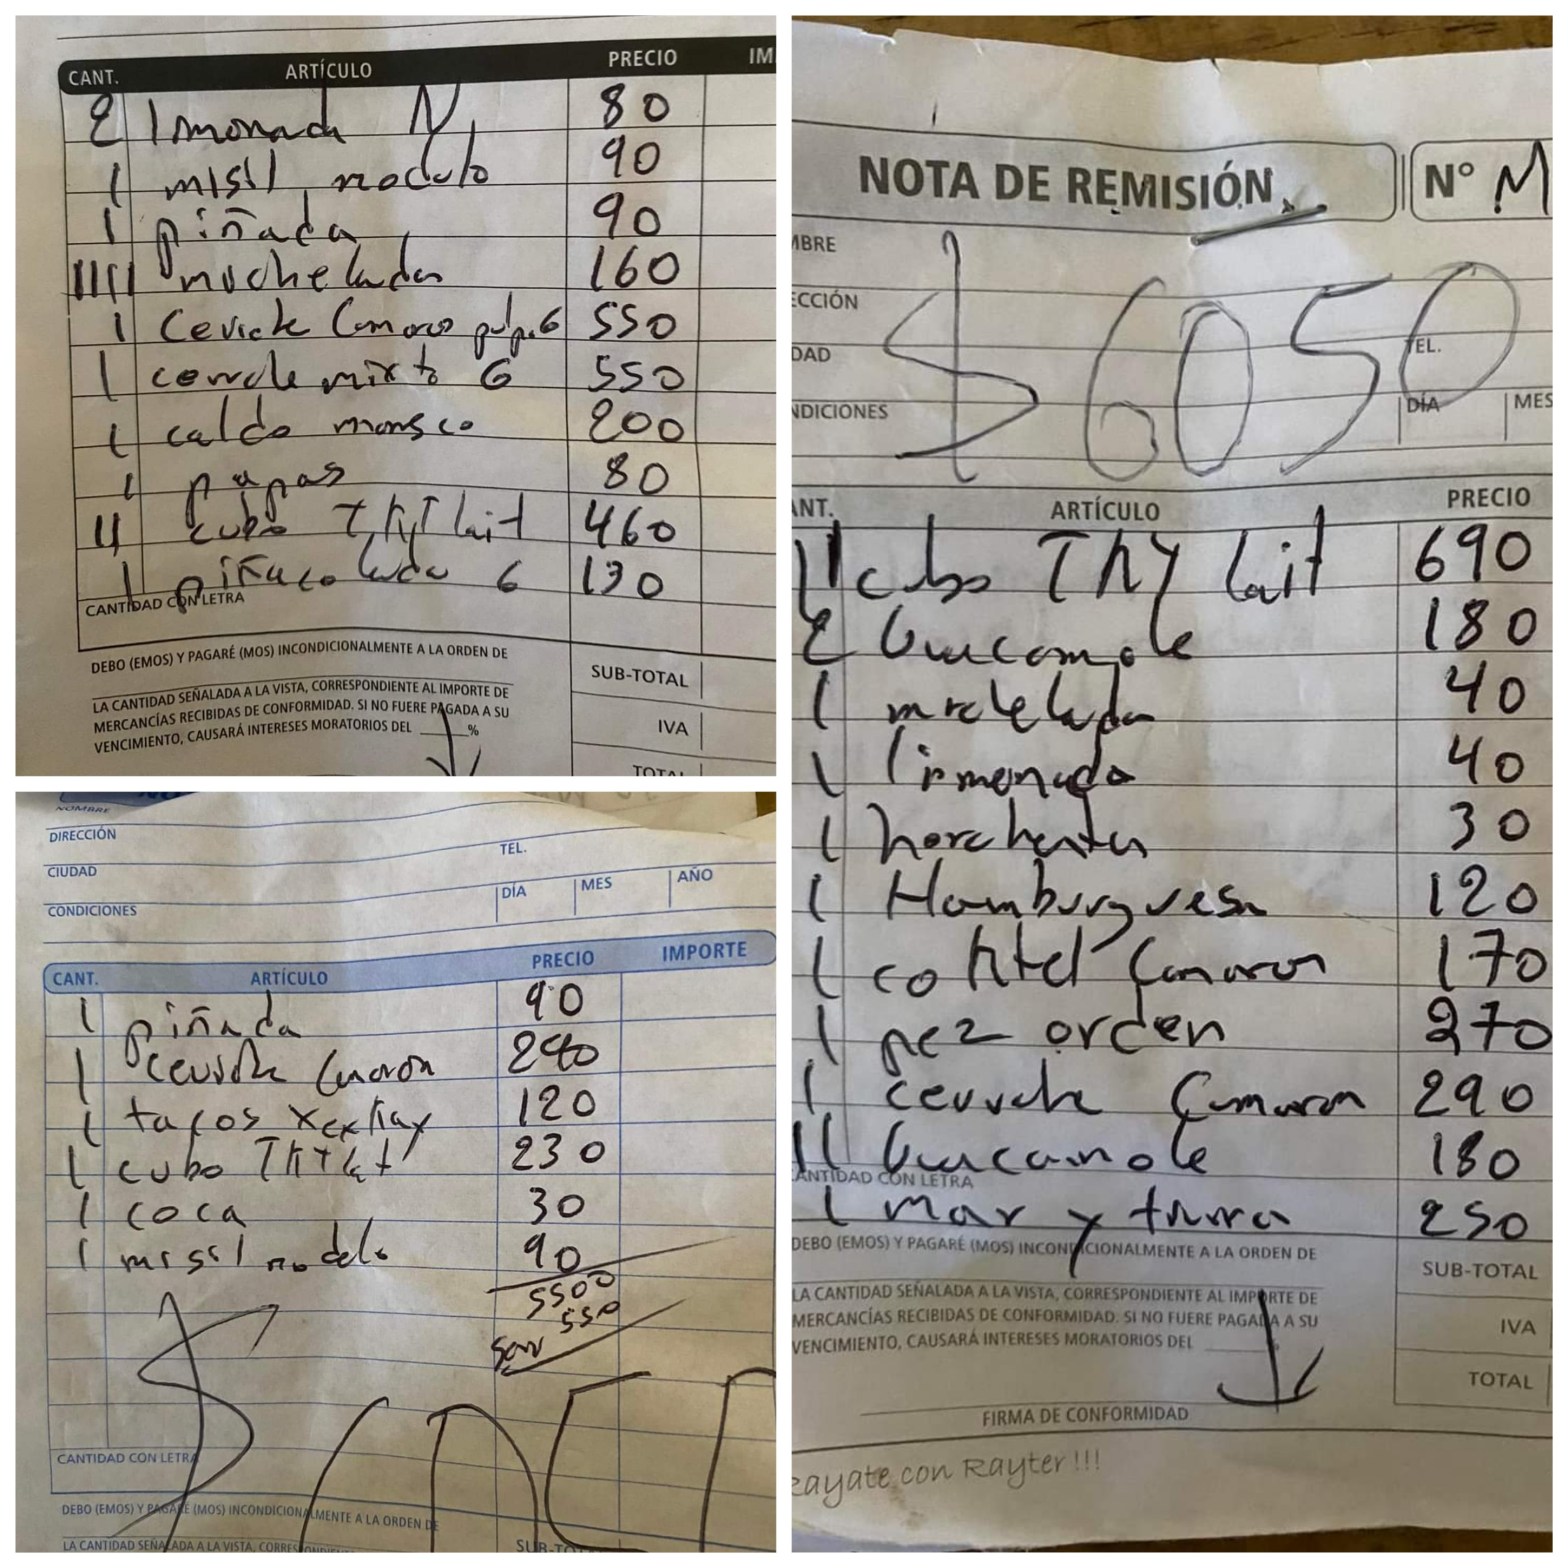 CANT. ARTÍCULO PRECIO IM
2 lmonada N, 80
1 misil modelo 90
1 piñada 90
IIII michelada 160
1 Ceviche Camaron pulp. 6 550
1 ceviche mixto 6 550
1 caldo marisco 200
1 papas 80
II cubo Lait 460
1 piñacolada 6 130
CANTIDAD CON LETRA
DEBO (EMOS) Y PAGARÉ (MOS) INCONDICIONALMENTE A LA ORDEN DE
SUB-TOTAL
LA CANTIDAD SEÑALADA A LA VISTA, CORRESPONDIENTE AL IMPORTE DE
MERCANCÍAS RECIBIDAS DE CONFORMIDAD. SI NO FUERE PAGADA A SU
IVA
VENCIMIENTO, CAUSARÁ INTERESES MORATORIOS DEL ______%
TOTAL
NOMBRE
DIRECCIÓN
TEL.
CIUDAD
DÍA MES AÑO
CONDICIONES
CANT. ARTÍCULO PRECIO IMPORTE
1 piñada 90
1 ceviche Camaron 290
1 tacos 120
1 cubo 230
1 coca 30
1 misil modelo 90
5500
550
$
CANTIDAD CON LETRA
DEBO (EMOS) Y PAGARÉ (MOS) INCONDICIONALMENTE A LA ORDEN DE
LA CANTIDAD SEÑALADA A LA VISTA, CORRESPONDIENTE
SUB-TOT
NOTA DE REMISIÓN N° M
MBRE
$6050
ECCIÓN
DAD TEL.
NDICIONES DÍA MES
ANT. ARTÍCULO PRECIO
III cubo Lait 690
2 Guacamole 180
1 michelada 40
1 limonada 40
1 horchata 30
1 Hamburguesa 120
1 coktel Camaron 170
1 pez orden 270
1 ceviche Camaron 290
II Guacamole 180
ANTIDAD CON LETRA
1 mar y tierra 250
DEBO (EMOS) Y PAGARÉ (MOS) INCONDICIONALMENTE A LA ORDEN DE
SUB-TOTAL
LA CANTIDAD SEÑALADA A LA VISTA, CORRESPONDIENTE AL IMPORTE DE
MERCANCÍAS RECIBIDAS DE CONFORMIDAD. SI NO FUERE PAGADA A SU
IVA
VENCIMIENTO, CAUSARÁ INTERESES MORATORIOS DEL ______
TOTAL
FIRMA DE CONFORMIDAD
Rayate con Rayter !!!